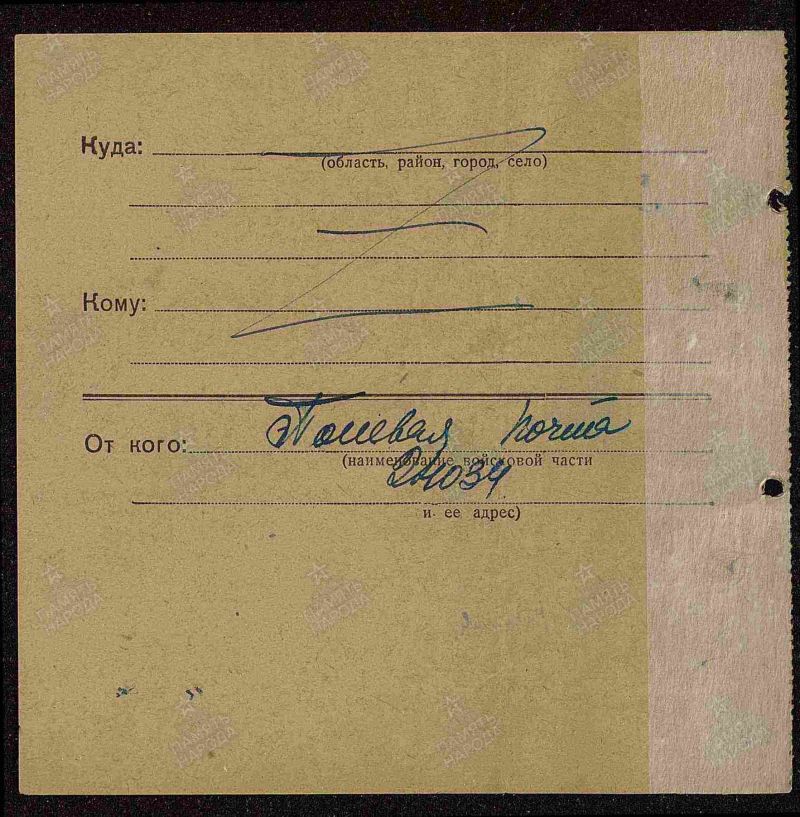 Куда:
(область, район, город, село)
Кому:
От кого: Полевая почта
(наименование войсковой части
и ее адрес)
ПАМЯТЬ НАРОДА